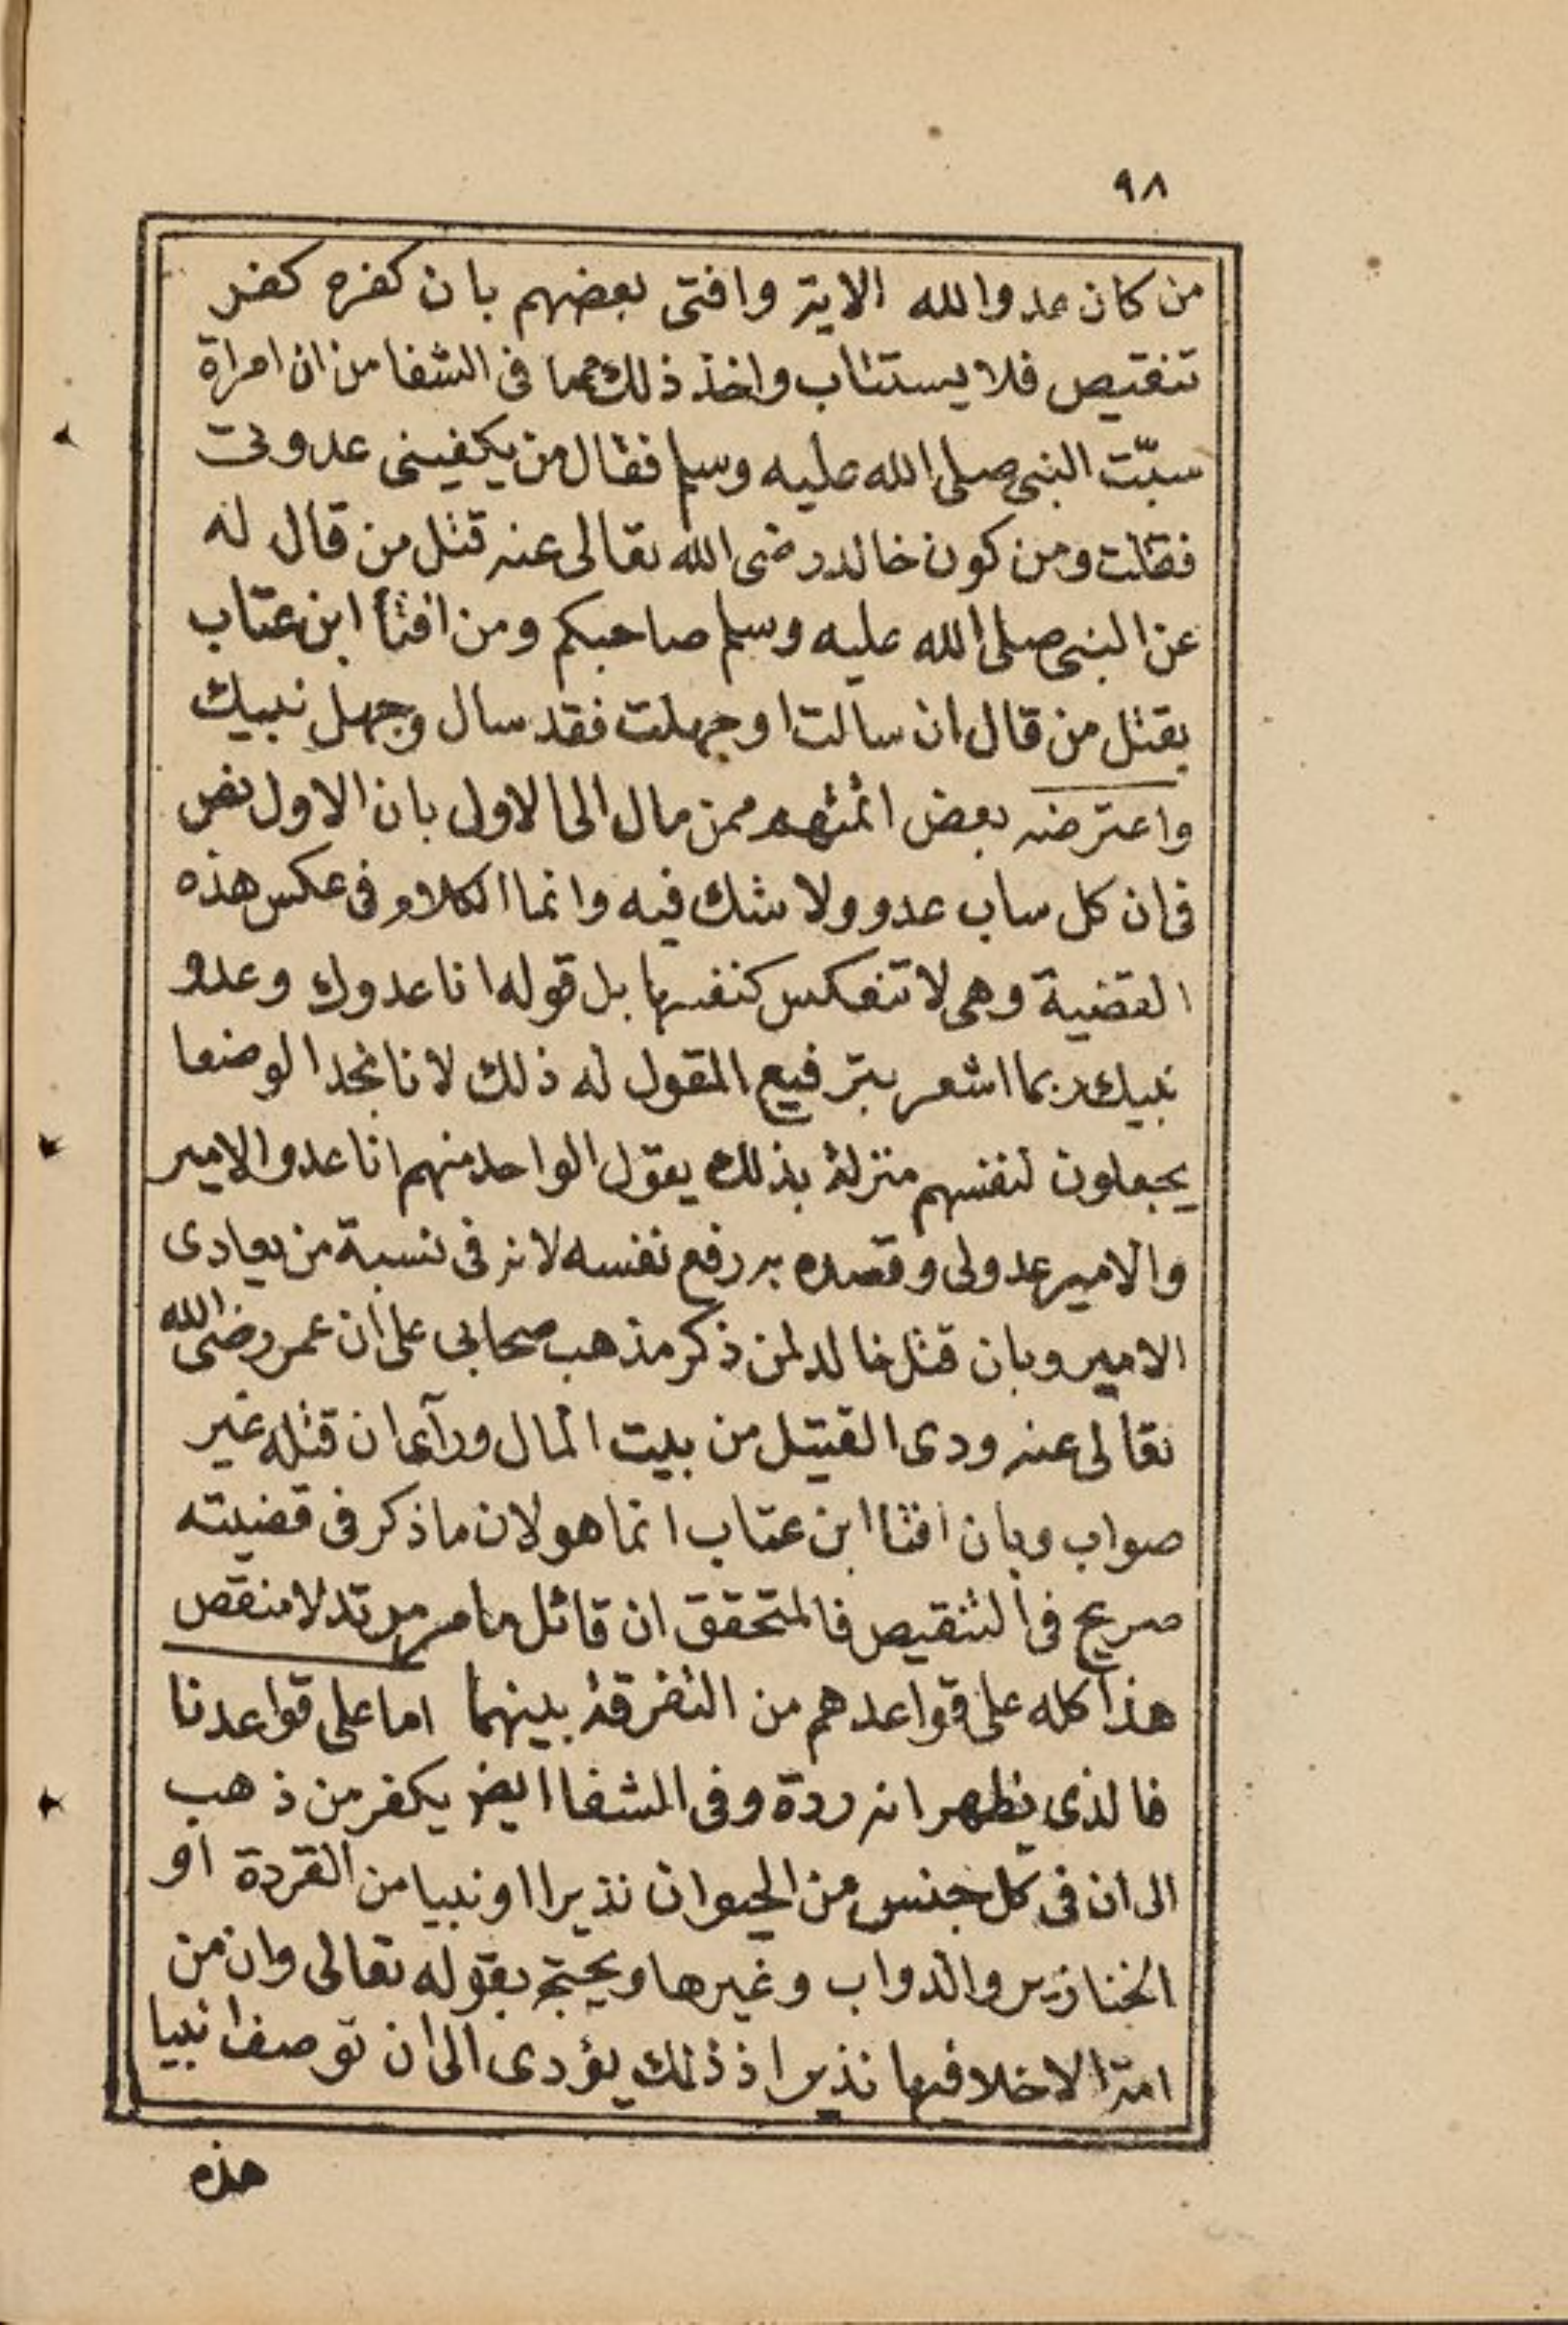 ٩٨
من كان عدوا لله الاية وافتى بعضهم بان كفره كفر
تنقيص فلا يستتاب واخذ ذلك مما فى الشفا من ان امراة
سبّت النبى صلى الله عليه وسلم فقال من يكفينى عدوتى
فقتلت ومن كون خالد رضى الله تعالى عنه قتل من قال له
عن النبى صلى الله عليه وسلم صاحبكم ومن افتأ ابن عتاب
بقتل من قال ان سالت او جهلت فقد سال وجهل نبيك
واعترضه بعض ائمتهم ممن مال الى الاول بان الاول نص
فى ان كل ساب عدو ولا شك فيه وانما الكلام فى عكس هذه
القضية وهى لا تنعكس كنفسها بل قوله انا عدوك وعدو
نبيك ربما اشعر بترفيع المقول له ذلك لانا نجد الوضعا
يجعلون لنفسهم منزلة بذلك يقول الواحد منهم انا عدو الامير
والامير عدولى وقصده به رفع نفسه لانه فى نسبة من يعادى
الامير وبان قتل خالد لمن ذكر مذهب صحابى على ان عمر رضى الله
تعالى عنه ودى القتيل من بيت المال ورآى ان قتله غير
صواب وبان افتا ابن عتاب انما هو لان ما ذكر فى قضيته
صريح فى التنقيص فالمتحقق ان قائل ما مر مرتد لا منقص
هذا كله على قواعدهم من التفرقة بينهما اما على قواعدنا
فالذى يظهر انه ردة وفى الشفا ايضا يكفر من ذهب
الى ان فى كل جنس من الحيوان نذيرا او نبيا من القردة او
الخنازير والدواب وغيرها ويحتج بقوله تعالى وان من
امة الا خلا فيها نذير اذ ذلك يؤدى الى ان توصف انبيا
هذه